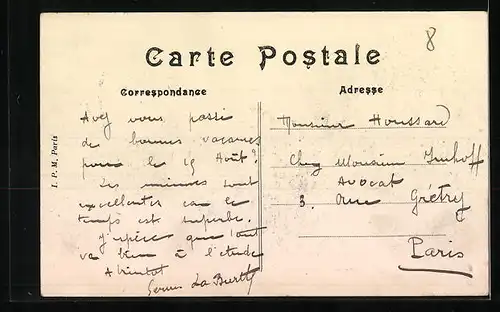 8
Carte Postale
Correspondance
Adresse
Avez vous passé
de bonnes vacances
pour le 15 Août ?
Les miennes sont
excellentes car le
temps est superbe.
J'espère que tout
va bien à l'étude
A bientôt
I. P. M. Paris
Monsieur Houssard
Chez Monsieur Imhoff
Avocat
3. rue Grétry
Paris